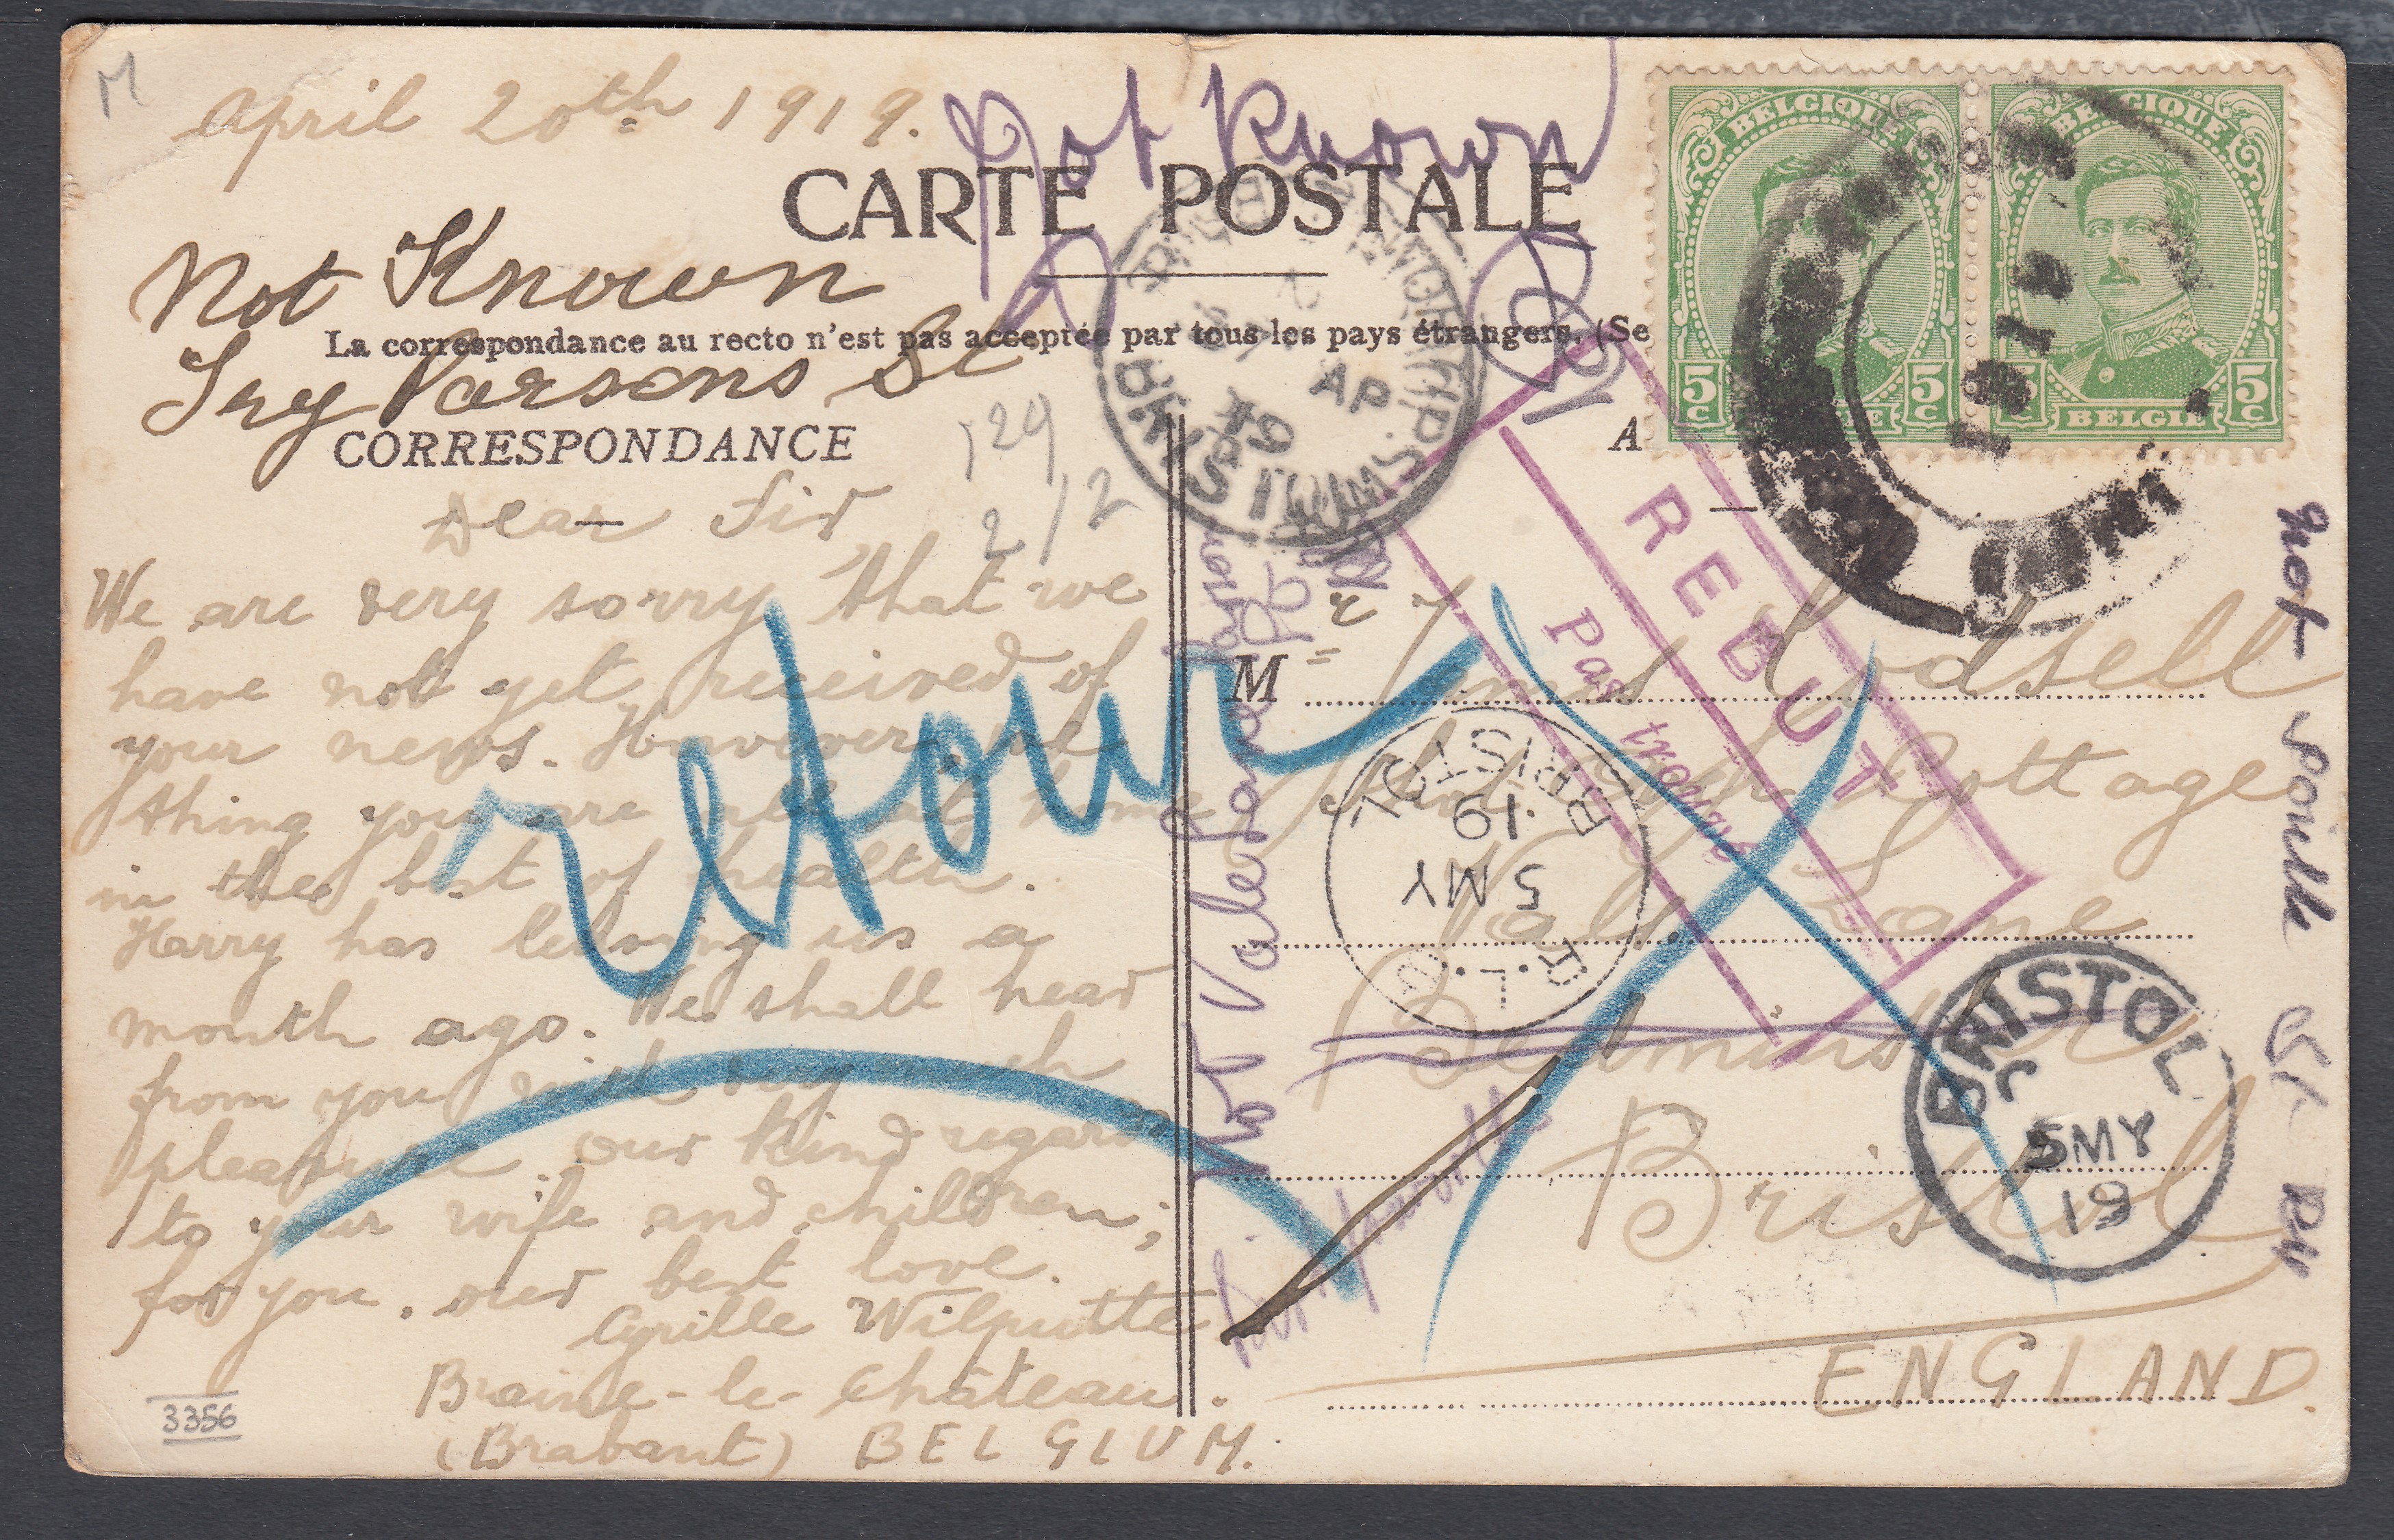 M
April 20th 1919.
Not Known
CARTE POSTALE
Not Known
Try Parsons St
La correspondance au recto n'est pas acceptée par tous les pays étrangers. (Se
CORRESPONDANCE
A
BELGIQUE
5 C 5 C
BELGIE
BELGIQUE
5 C
BELGIE
1919
AP
19
129
2/2
Dear Sir
We are very sorry that we
have not yet received of
your news. However we
thing you are all at home
in the best of health.
Harry has leaving us a
month ago. We shall hear
from you with very much
pleasure. Our kind regards
to your wife and children;
for you, our best love.
Cyrille Wilputte
Braine-le-Château.
(Brabant) BELGIUM.
3356
retour
REBUT
Pas trouvé
M r
Godsell
Cottage
Lane
Bedminster
Bristol
ENGLAND.
BRISTOL
19
5 MY
BRISTOL
5 MY
19